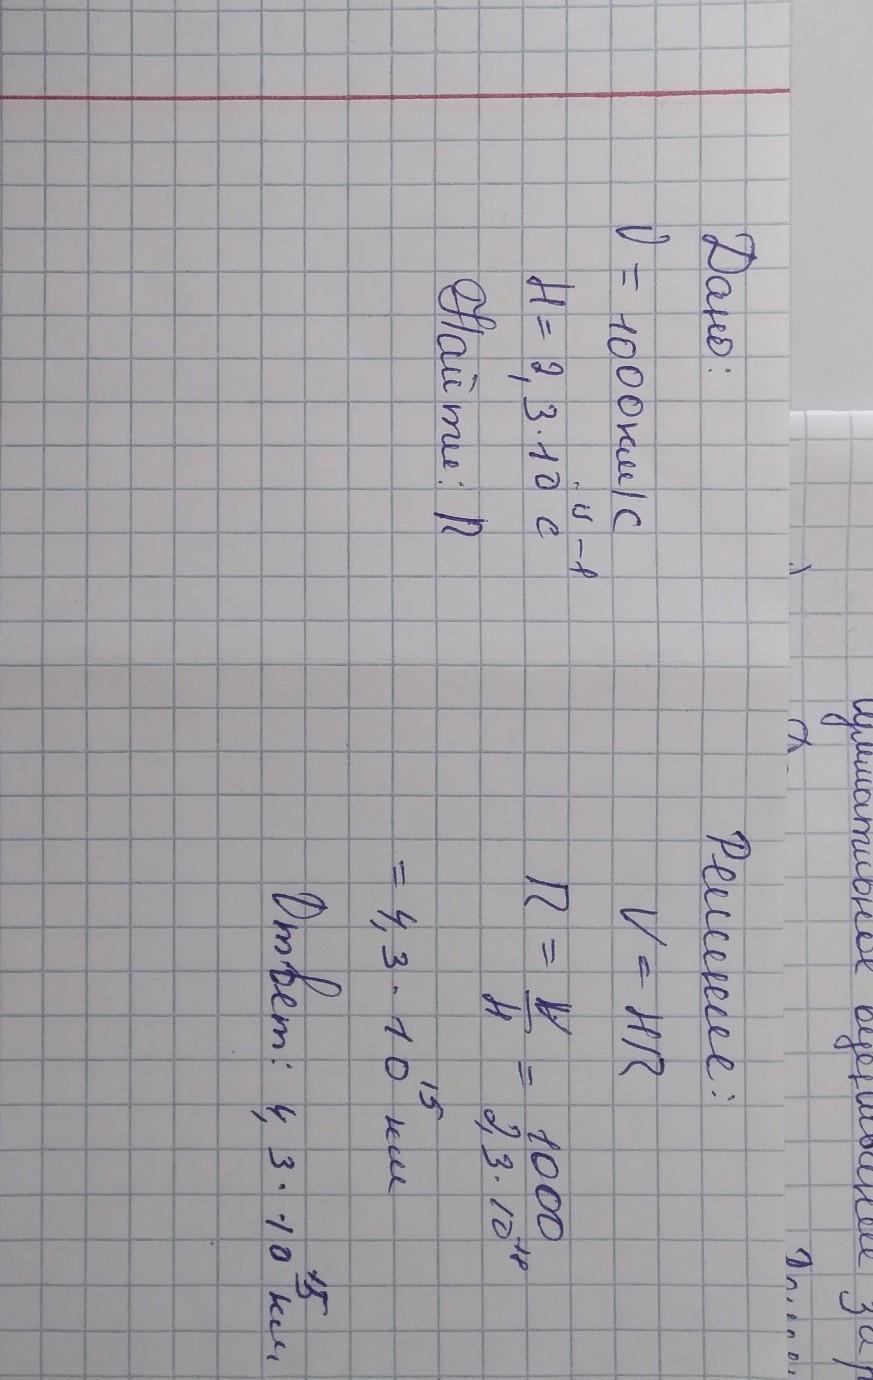 Дано:
V = 1000 км/с
H = 2,3·10 с⁻¹
Найти: R
Решение:
V = HR
R = V/H = 1000 / 2,3·10¹⁸
= 4,3·10¹⁵ км
Ответ: 4,3·10¹⁵ км